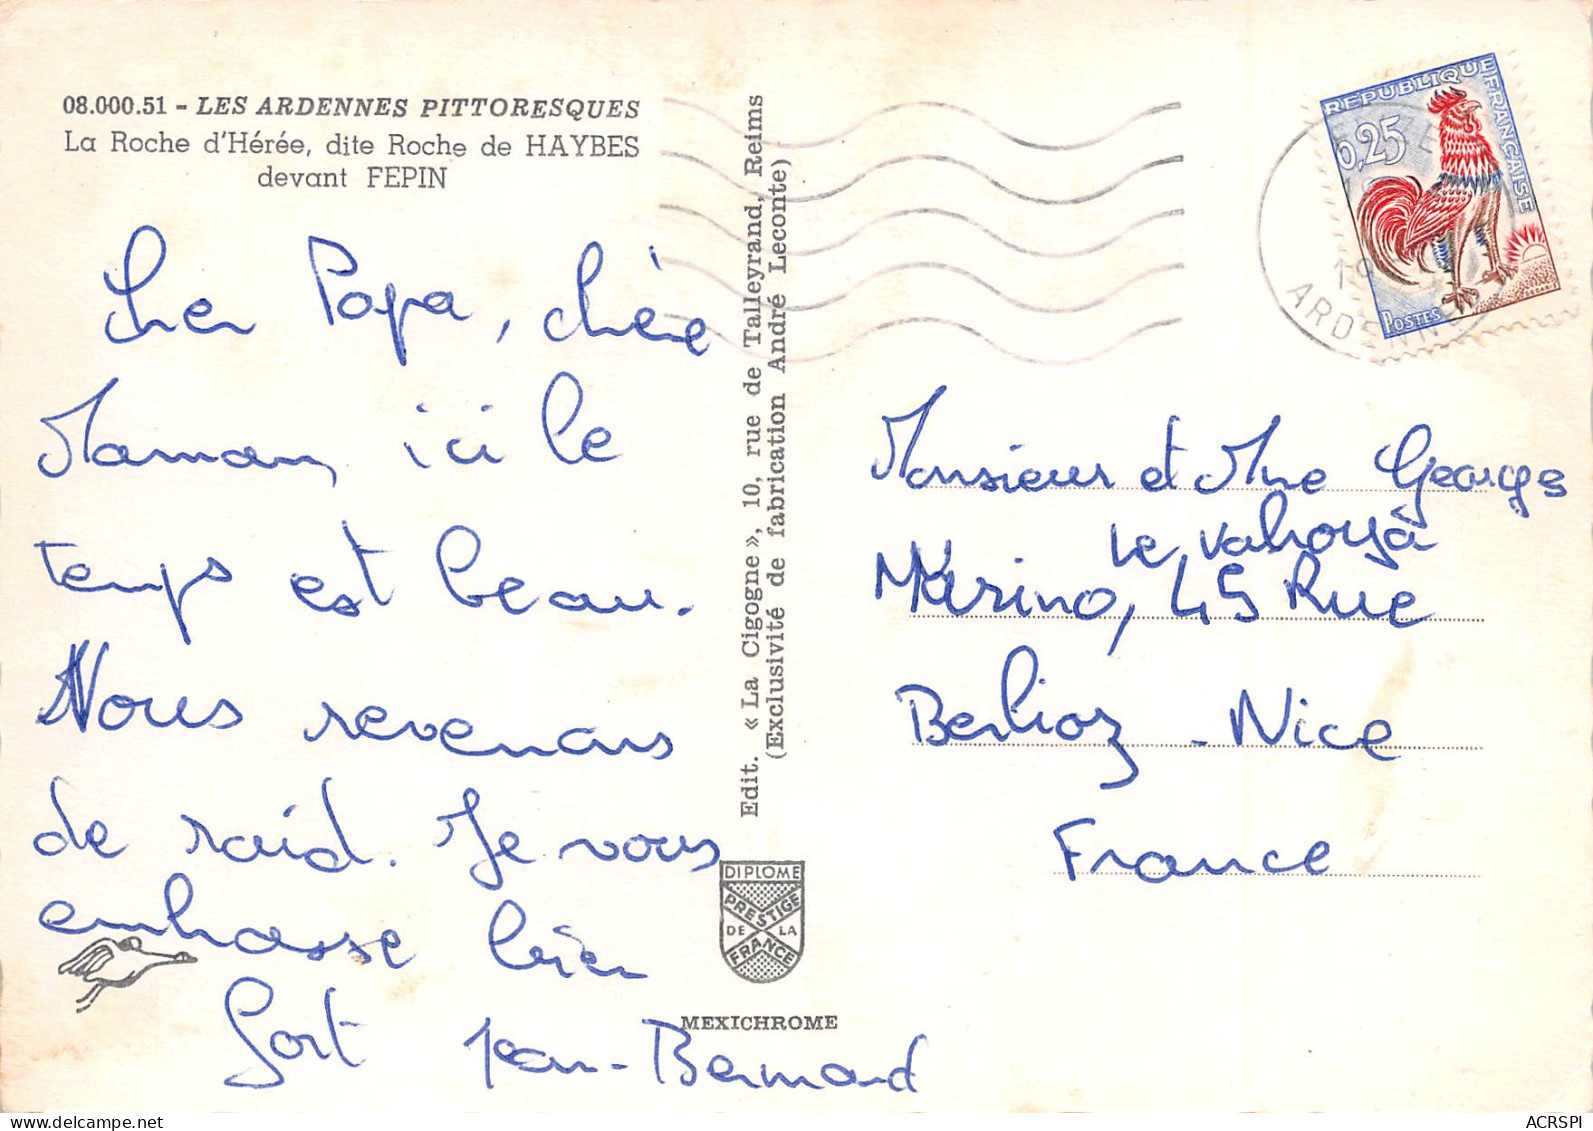 08.000.51 - LES ARDENNES PITTORESQUES
La Roche d'Hérée, dite Roche de HAYBES
devant FEPIN
Cher Papa, chère
Maman, ici le
temps est beau.
Nous revenons
de raid. Je vous
embrasse bien
fort Jean-Bernard
Edit. « La Cigogne », 10, rue de Talleyrand, Reims
(Exclusivité de fabrication André Leconte)
DIPLOME
PRESTIGE
DE LA
FRANCE
MEXICHROME
REPUBLIQUE FRANÇAISE
0,25
POSTES
19
ARDENNES
Monsieur et Mme Georges
Le Vahoya
Merino, 45 Rue
Berlioz - Nice
France
ACRSPI